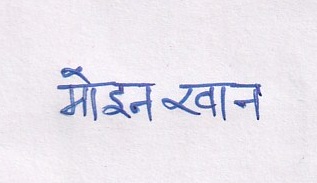 मोइन खान